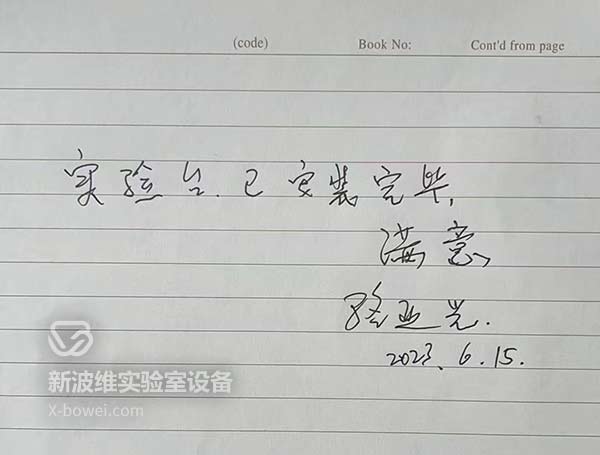 (code) Book No: Cont'd from page
实验台已安装完毕,
满意
骆亚光.
2023. 6. 15.
新波维实验室设备
X-bowei.com